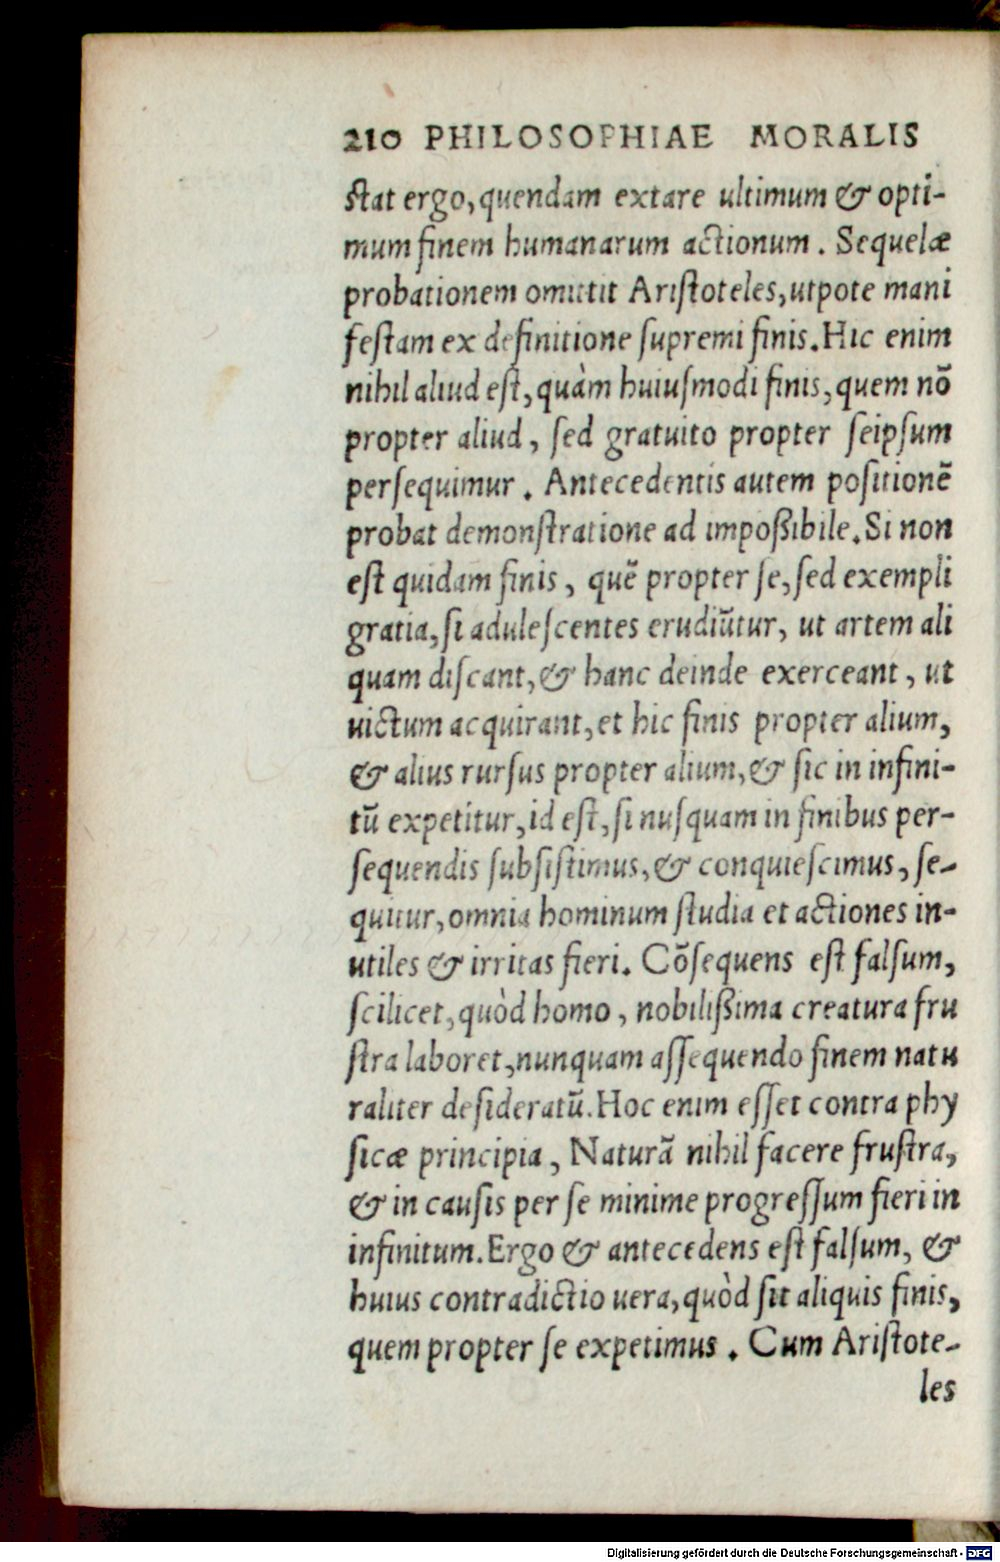 210 PHILOSOPHIAE MORALIS
ſtat ergo, quendam extare ultimum & opti-
mum finem humanarum actionum. Sequelæ
probationem omittit Ariſtoteles, utpote mani
feſtam ex definitione ſupremi finis. Hic enim
nihil aliud eſt, quàm huiuſmodi finis, quem nõ
propter aliud, ſed gratuito propter ſeipſum
perſequimur. Antecedentis autem poſitionẽ
probat demonſtratione ad impoßibile. Si non
eſt quidam finis, quẽ propter ſe, ſed exempli
gratia, ſi aduleſcentes erudiũtur, ut artem ali
quam diſcant, & hanc deinde exerceant, ut
uictum acquirant, et hic finis propter alium,
& alius rurſus propter alium, & ſic in infini-
tũ expetitur, id eſt, ſi nuſquam in finibus per-
ſequendis ſubſiſtimus, & conquieſcimus, ſe-
quitur, omnia hominum ſtudia et actiones in-
utiles & irritas fieri. Cõſequens eſt falſum,
ſcilicet, quòd homo, nobilißima creatura fru
ſtra laboret, nunquam aſſequendo finem natu
raliter deſideratũ. Hoc enim eſſet contra phy
ſicæ principia, Naturã nihil facere fruſtra,
& in cauſis per ſe minime progreſſum fieri in
infinitum. Ergo & antecedens eſt falſum, &
huius contradictio uera, quòd ſit aliquis finis,
quem propter ſe expetimus. Cum Ariſtote-
les
Digitalisierung gefördert durch die Deutsche Forschungsgemeinschaft - DFG